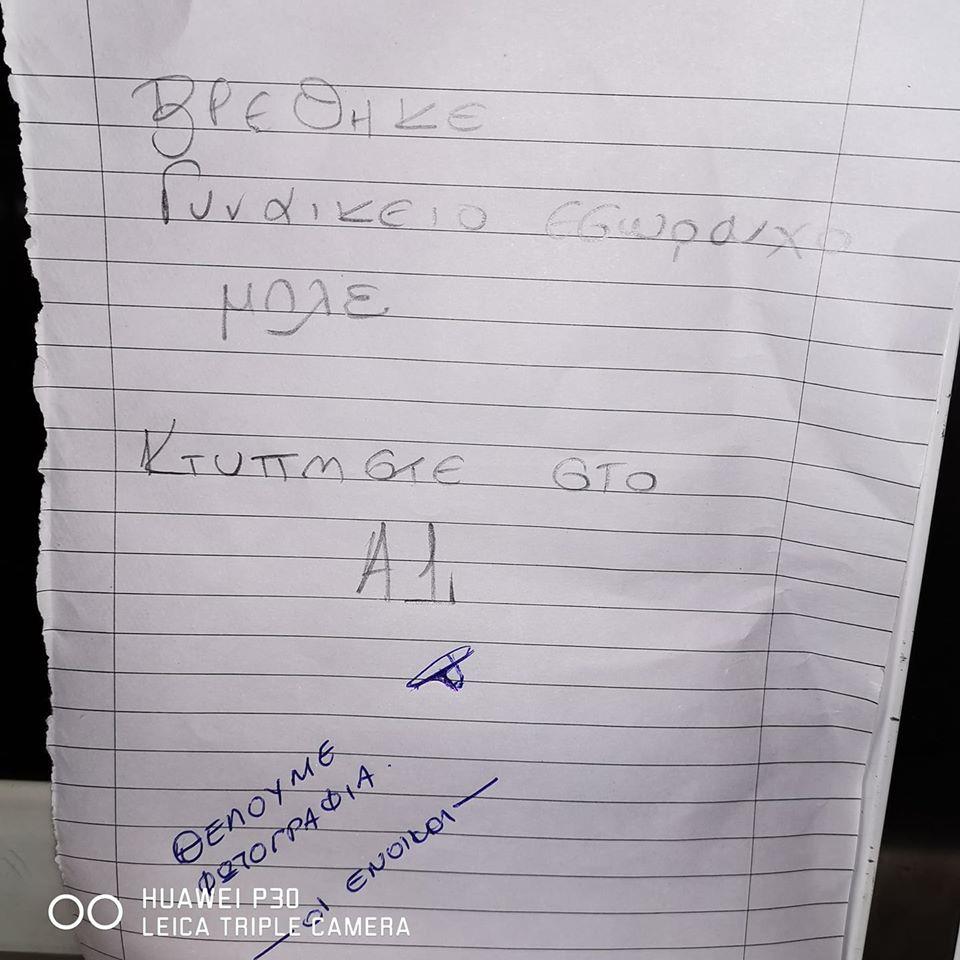 Βρεθηκε
Γυναικειο εσωραιχο
μπλε
Κτυπησετε στο
Α1.
ΘΕΛΟΥΜΕ
ΦΩΤΟΓΡΑΦΙΑ.
— ΟΙ ΕΝΟΙΚΟΙ —
HUAWEI P30
LEICA TRIPLE CAMERA